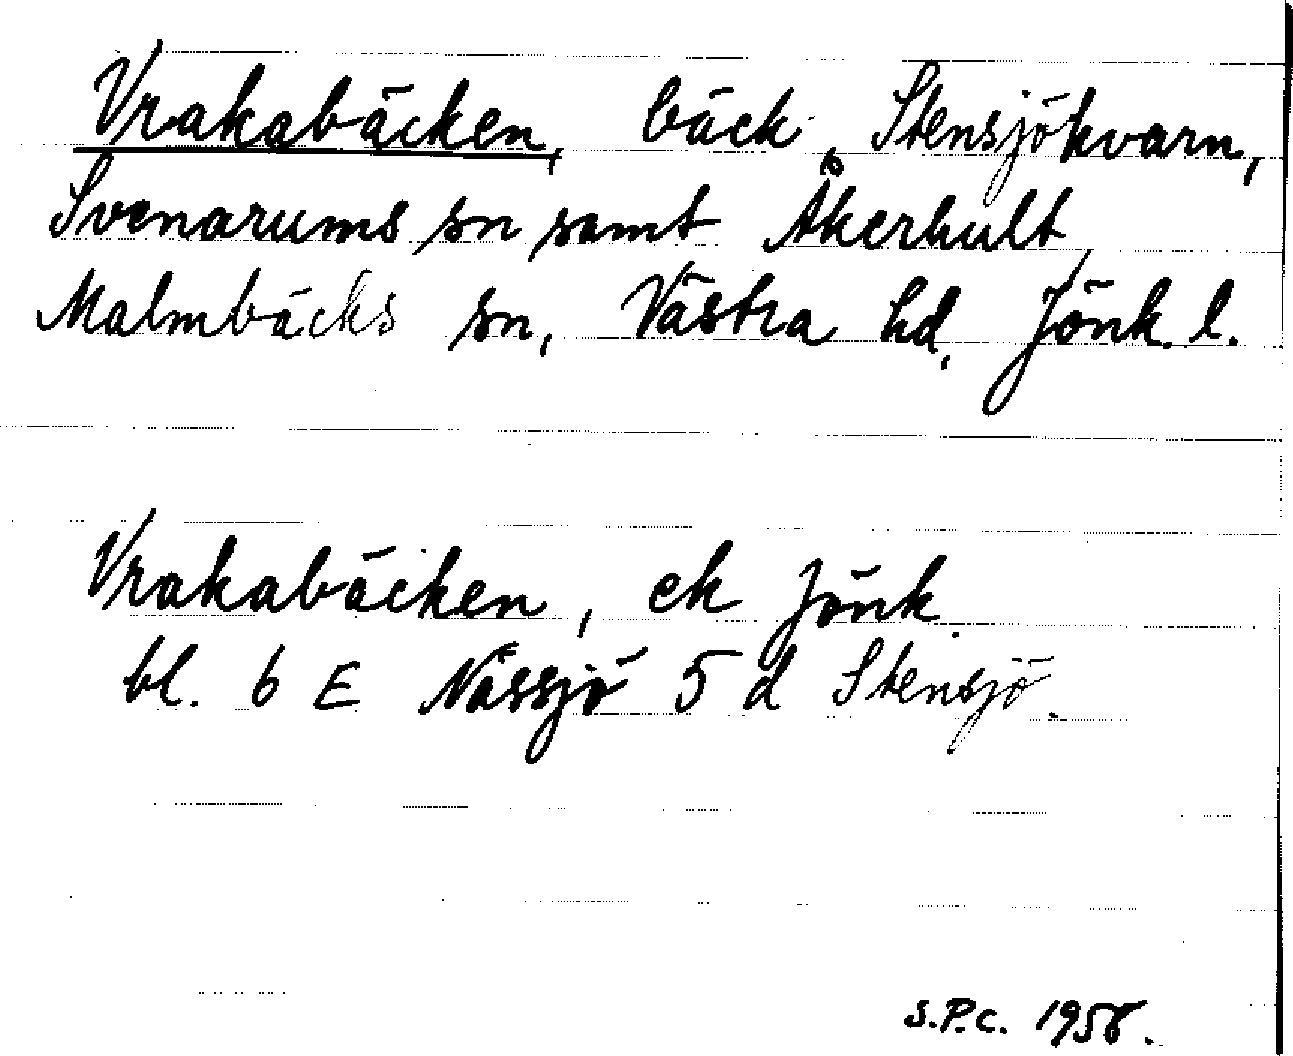 Vrakabäcken, bäck, Stensjökvarn,
Svenarums sn samt Åkerhult,
Malmbäcks sn, Västra hd, Jönk. l.
Vrakabäcken, ek Jönk.
bl. 6 E Nässjö 5 d Stensjö.
S.P.C. 1958.